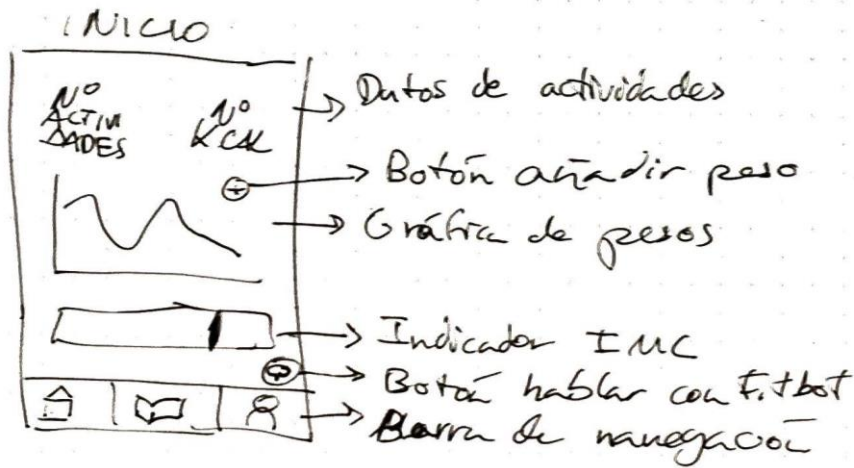 INICIO
Nº
ACTIVI
DADES
Nº
KCAL
Datos de actividades
Botón añadir peso
Gráfica de pesos
Indicador IMC
Botón hablar con Fitbot
Barra de navegación